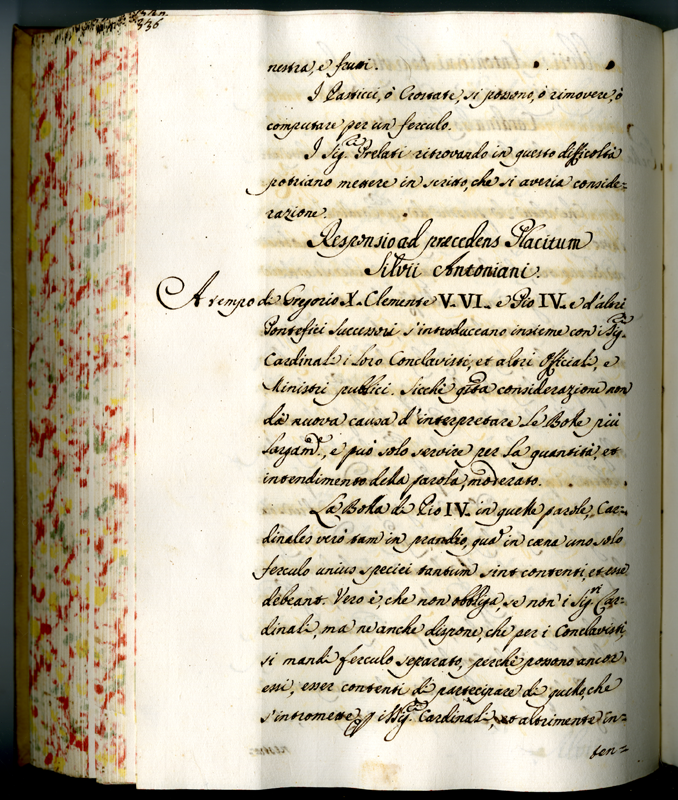 336
nestra, e frutti.
I Pasticci, ò Crostate, si possono, ò rimovere, ò
computare per un ferculo.
I Sig.ri Prelati ritrovando in questo difficoltà
potriano mettere in scritto, che si averia conside=
razione.
Responsio ad præcedens Placitum
Silvii Antoniani.
A tempo di Gregorio X. Clemente V. VI. e Pio IV. e d'altri
Pontefici Successori s'introduceano insieme con i Sig.ri
Cardinali i loro Conclavisti, et altri Officiali, e
Ministri publici. Sicchè q.sta considerazione non
dà nuova causa d'interpretare le Bolle più
largam.te, e può solo servire per la quantità, et
intendimento della parola, moderato.
La Bolla di Pio IV. in quelle parole, Car=
dinales verò tam in prandio, quà in cæna uno solo
ferculo unius speciei tantum sint contenti, et esse
debeant. Vero è, che non obbliga, se non i Sig.ri Car=
dinali, ma ne anche dispone, che per i Conclavisti,
si mandi ferculo separato, perchè possano ancor
essi, esser contenti di partecipare di quello, che
s'intromette p i Sig.ri Cardinali, et altrimente in=
ten=